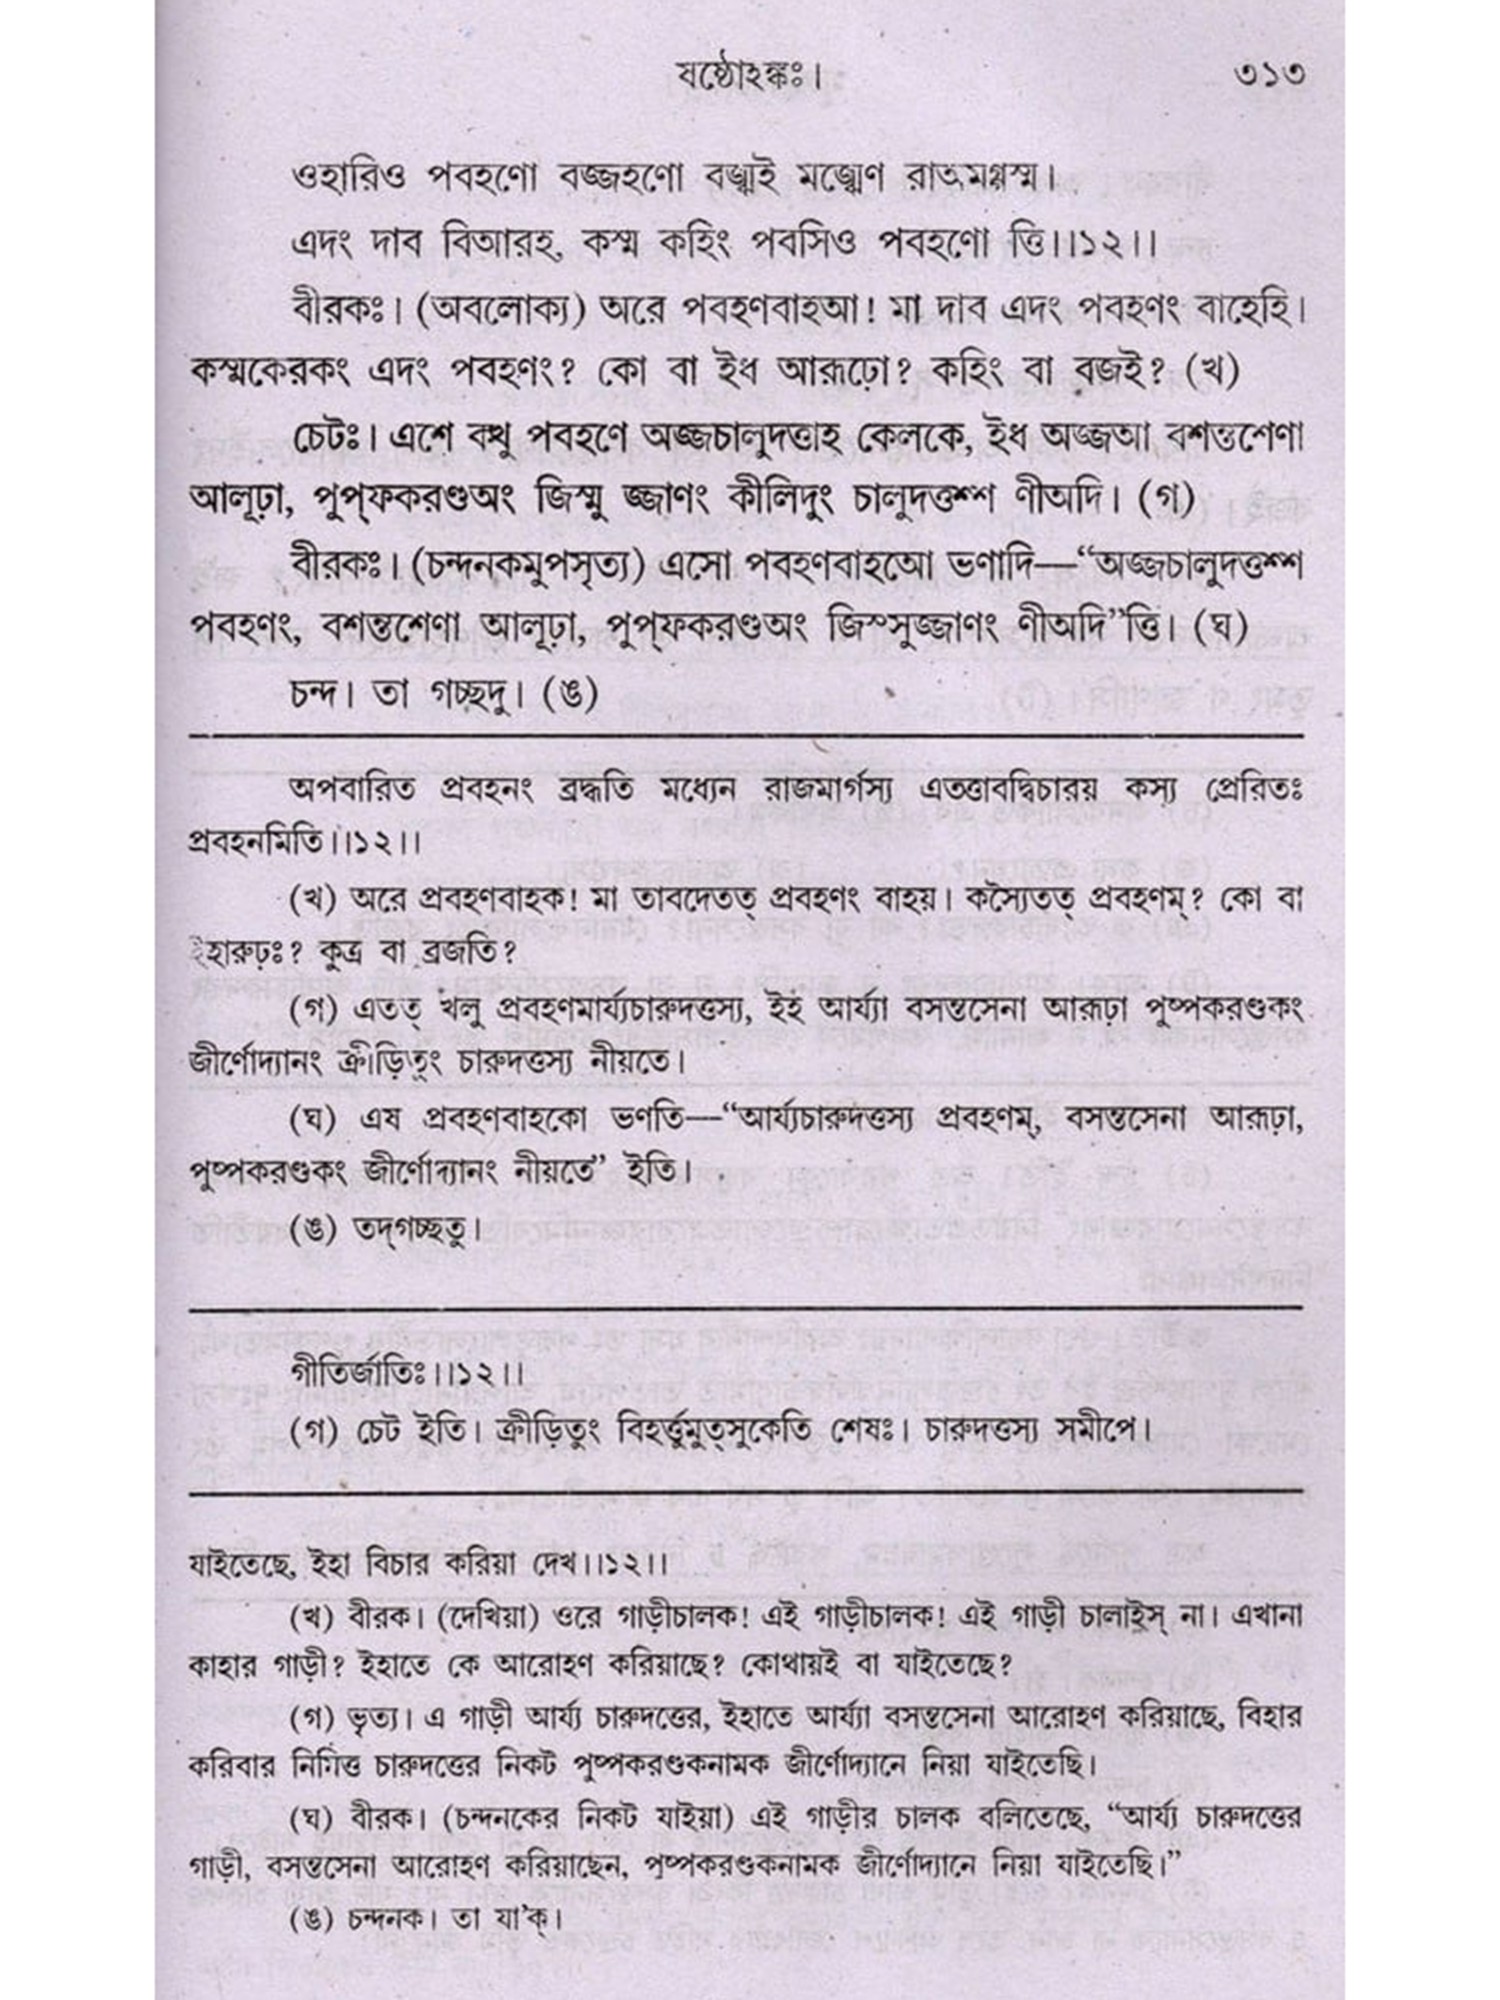 ষষ্ঠোহঙ্কঃ। ৩১৩
ওহারিও পবহণো বজ্জহণো বজ্ঝই মজ্ঝেণ রাঅমগ্গস্ম।
এদং দাব বিআরহ, কস্ম কহিং পবসিও পবহণো ত্তি।।১২।।
বীরকঃ। (অবলোক্য) অরে পবহণবাহআ! মা দাব এদং পবহণং বাহেহি।
কস্মকেরকং এদং পবহণং? কো বা ইধ আরূঢ়ো? কহিং বা বজই? (খ)
চেটঃ। এশে ক্খু পবহণে অজ্জচালুদত্তাহ কেলকে, ইধ অজ্জআ বশন্তশেণা
আলূঢ়া, পুপ্ফকরণ্ডঅং জিস্মু জ্জাণং কীলিদুং চালুদত্তশ্শ ণীঅদি। (গ)
বীরকঃ। (চন্দনকমুপসৃত্য) এসো পবহণবাহআে ভণাদি—“অজ্জচালুদত্তশ্শ
পবহণং, বশন্তশেণা আলূঢ়া, পুপ্ফকরণ্ডঅং জিস্সুজ্জাণং ণীঅদি”ত্তি। (ঘ)
চন্দ। তা গচ্ছদু। (ঙ)
অপবারিত প্রবহনং ব্রদ্ধতি মধ্যেন রাজমার্গস্য এতত্তাবদ্বিচারয় কস্য প্রেরিতঃ
প্রবহনমিতি।।১২।।
(খ) অরে প্রবহণবাহক! মা তাবদেতত্ প্রবহণং বাহয়। কস্যৈতত্ প্রবহণম্? কো বা
ইহারুঢ়ঃ? কুত্র বা ব্রজতি?
(গ) এতত্ খলু প্রবহণমার্য্যচারুদত্তস্য, ইহ আর্য্যা বসন্তসেনা আরূঢ়া পুষ্পকরণ্ডকং
জীর্ণোদ্যানং ক্রীড়িতুং চারুদত্তস্য নীয়তে।
(ঘ) এষ প্রবহণবাহকো ভণতি—“আর্য্যচারুদত্তস্য প্রবহণম্, বসন্তসেনা আরূঢ়া,
পুষ্পকরণ্ডকং জীর্ণোদ্যানং নীয়তে” ইতি।
(ঙ) তদ্‌গচ্ছতু।
গীতির্জাতিঃ।।১২।।
(গ) চেট ইতি। ক্রীড়িতুং বিহর্ত্তুমুত্সুকেতি শেষঃ। চারুদত্তস্য সমীপে।
যাইতেছে, ইহা বিচার করিয়া দেখ।।১২।।
(খ) বীরক। (দেখিয়া) ওরে গাড়ীচালক! এই গাড়ীচালক! এই গাড়ী চালাইস্ না। এখানা
কাহার গাড়ী? ইহাতে কে আরোহণ করিয়াছে? কোথায়ই বা যাইতেছে?
(গ) ভৃত্য। এ গাড়ী আর্য্য চারুদত্তের, ইহাতে আর্য্যা বসন্তসেনা আরোহণ করিয়াছে, বিহার
করিবার নিমিত্ত চারুদত্তের নিকট পুষ্পকরণ্ডকনামক জীর্ণোদ্যানে নিয়া যাইতেছি।
(ঘ) বীরক। (চন্দনকের নিকট যাইয়া) এই গাড়ীর চালক বলিতেছে, “আর্য্য চারুদত্তের
গাড়ী, বসন্তসেনা আরোহণ করিয়াছেন, পুষ্পকরণ্ডকনামক জীর্ণোদ্যানে নিয়া যাইতেছি।”
(ঙ) চন্দনক। তা যা’ক্।